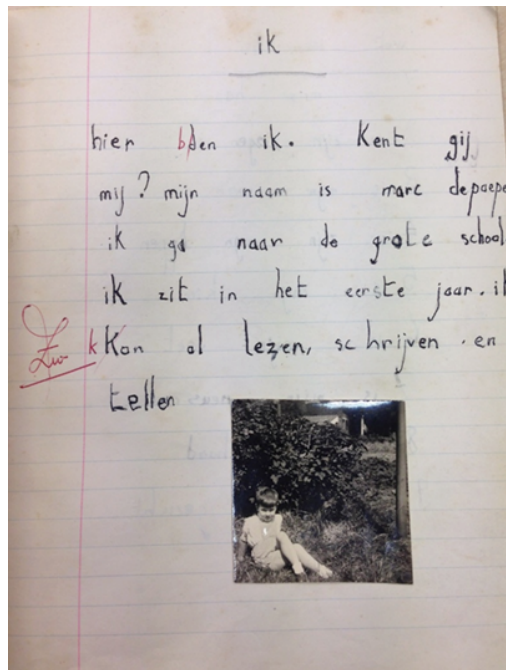 ik
hier ben ik. Kent gij
mij? mijn naam is marc depaepe
ik ga naar de grote school
ik zit in het eerste jaar. ik
kan al lezen, schrijven. en
tellen